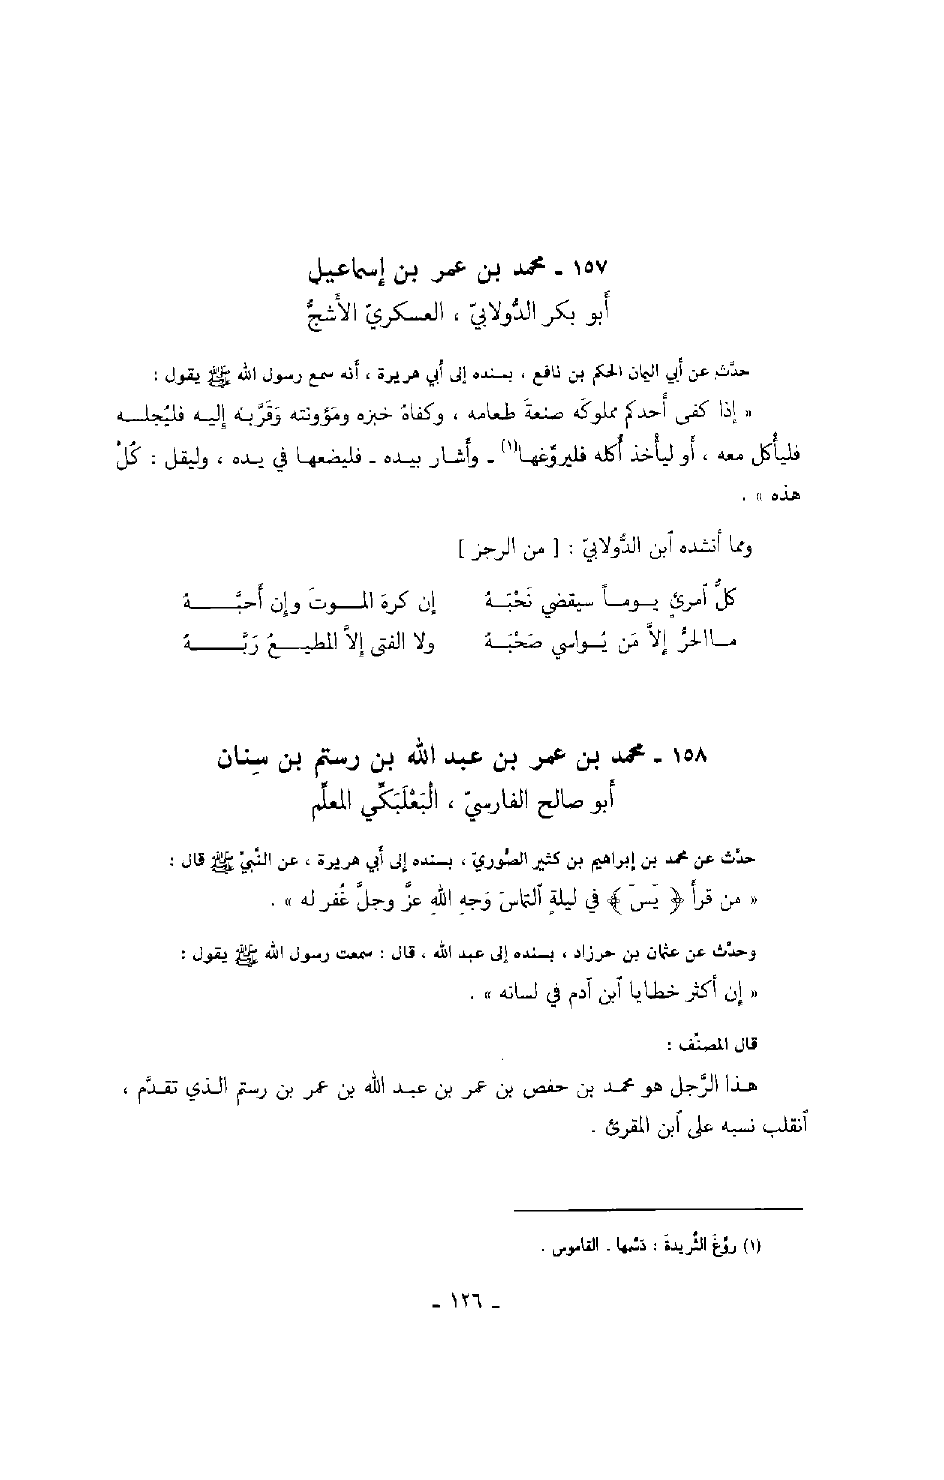 ١٥٧ ـ محمد بن عمر بن إسماعيل
أبو بكر الدُّولابيّ ، العسكريّ الأَشجُّ
حدَّث عن أبي اليمان الحكم بن نافع ، بسنده إلى أبي هريرة ، أنه سمع رسول الله ﷺ يقول :
« إذا كفى أحدكم مملوكه صنعةَ طعامه ، وكفاهُ خبزه ومؤونته وَقَرَّبه إليه فليُجلسه
فليأكل معه ، أو ليأخذ أُكله فليروِّغها(١) ـ وأشار بيده ـ فليضعها في يده ، وليقل : كُلْ
هذه » .
ومما أنشده ٱبن الدُّولابيّ : [ من الرجز ]
كلُّ ٱمرئٍ يوماً سيقضي نَحْبَهُ إن كرهَ الموتَ وإن أَحبَّهُ
ما الحرُّ إلاَّ مَن يُواسي صَحْبَهُ ولا الفتى إلاَّ المطيعُ رَبَّهُ
١٥٨ ـ محمد بن عمر بن عبد الله بن رستم بن سِنان
أبو صالح الفارسيّ ، الْبَعْلَبَكِّي المعلِّم
حدَّث عن محمد بن إبراهيم بن كثير الصُّوريّ ، بسنده إلى أبي هريرة ، عن النَّبيّ ﷺ قال :
« من قرأ ﴿ يَسَ ﴾ في ليلةٍ ٱلتماسَ وَجهِ اللهِ عزَّ وجلَّ غُفر له » .
وحدَّث عن عثمان بن خرزاد ، بسنده إلى عبد الله ، قال : سمعت رسول الله ﷺ يقول :
« إن أكثر خطايا ٱبن آدم في لسانه » .
قال المصنِّف :
هذا الرَّجل هو محمد بن حفص بن عمر بن عبد الله بن عمر بن رستم الذي تقدَّم ،
ٱنقلب نسبه على ٱبن المقرئ .
(١) روَّغَ الثَّريدةَ : دَسَّمها . القاموس .
ـ ١٢٦ ـ